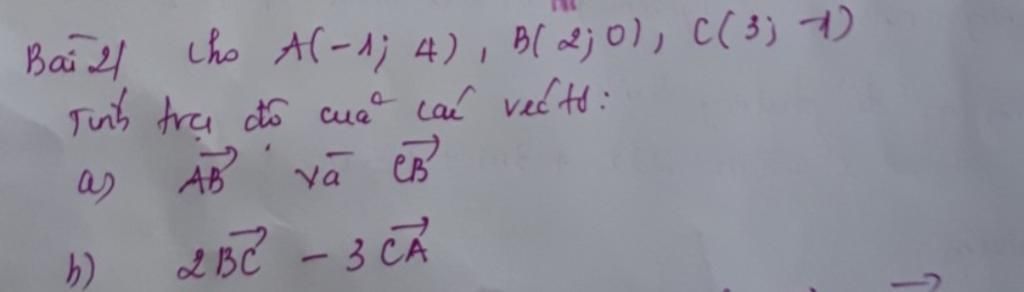 Bài 2/ Cho A(-1; 4), B(2; 0), C(3; -1)
Tính tọa độ của các véctơ:
a) \overrightarrow{AB} và \overrightarrow{CB}
b) 2\overrightarrow{BC} - 3\overrightarrow{CA}